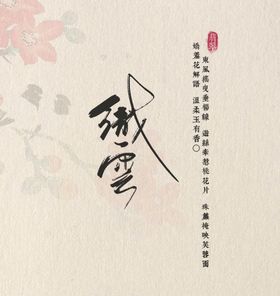 東風搖曳垂楊線 遊絲牽惹桃花片 珠簾掩映芙蓉面
嬌羞花解語 溫柔玉有香〇
纖雲